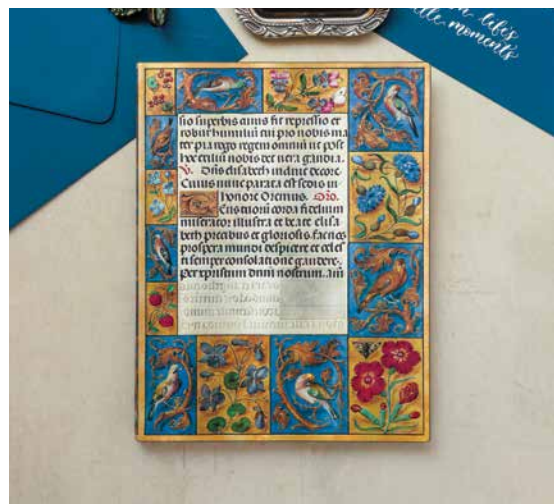 lifes
moments
sio superbis cuius fit repressio et
robur humiliū tui pro nobis ma
ter pia rogo regem omniū ut post
hoc exiliū nobis det uera gaudia.
V. Dn̄s elisabeth induit decore.
Cuius nunc parata est sedis in
honore Oremus. Oro.
Eus tuorū corda fidelium
miserator illustra et beate elisa
beth precibus et gloriosis fac nos
prospera mundi despicere et celes
ti semper consolatione gaudere.
Per xpristum dnm nostrum. am